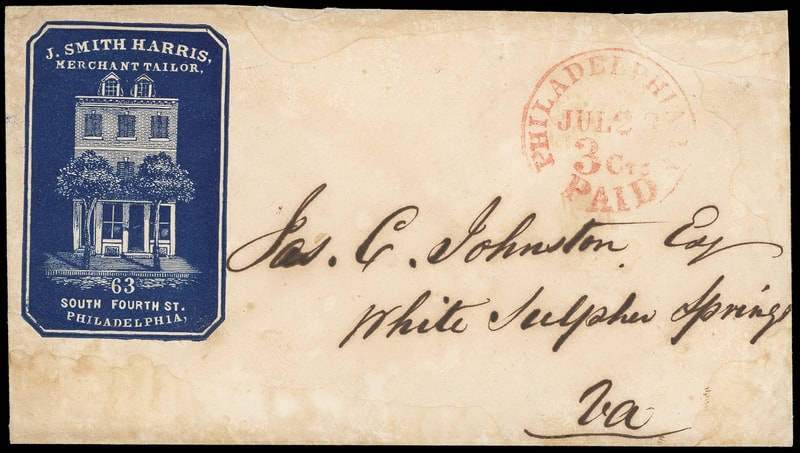 J. SMITH HARRIS,
MERCHANT TAILOR,
63
SOUTH FOURTH ST.
PHILADELPHIA,
PHILADELPHIA
JUL 2
3 Cts
PAID
Jas. C. Johnston Esq
White Sulpher Springs
Va